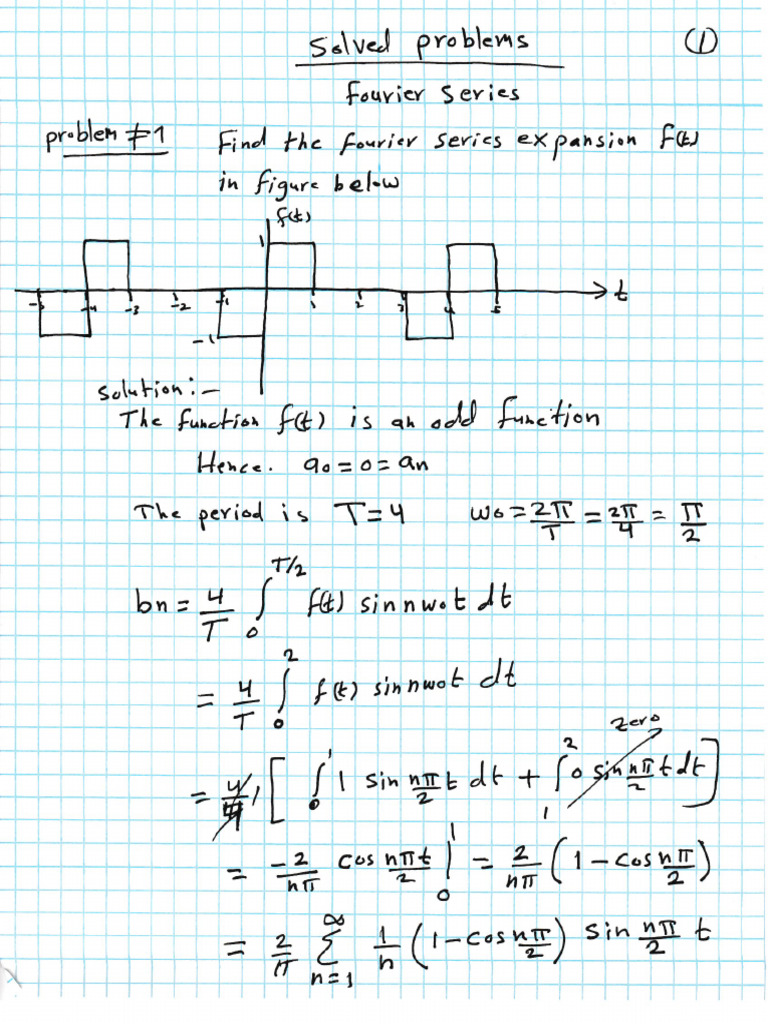 Solved problems (1)
Fourier Series
problem #1 Find the fourier series expansion f(t)
in figure below
f(t)
1
-5 -4 -3 -2 -1 1 2 3 4 5 t
-1
Solution:-
The function f(t) is an odd function
Hence. a0 = 0 = an
The period is T=4 w0 = 2π/T = 2π/4 = π/2
bn = 4/T ∫₀^(T/2) f(t) sin nw0t dt
= 4/T ∫₀² f(t) sin nw0t dt
zero
= 4/4 1 [ ∫₀¹ 1 sin nπ/2 t dt + ∫₁² 0 sin nπ/2 t dt ]
= -2/nπ cos nπt/2 |₀¹ = 2/nπ (1 - cos nπ/2)
= 2/π ∑_(n=1)^∞ 1/n (1 - cos nπ/2) sin nπ/2 t